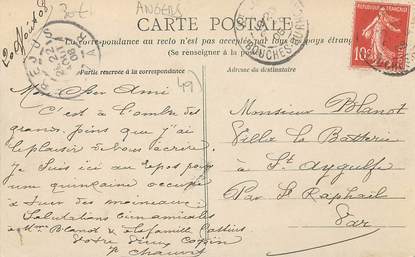 ANGERS
20 Août 08
CARTE POSTALE
La correspondance au recto n'est pas acceptée par tous les pays étrangers
(Se renseigner à la poste)
Partie réservée à la correspondance
Adresse du destinataire
FREJUS
VAR
BOUCHES-DU-RHÔNE
RÉPUBLIQUE FRANÇAISE
10
49
Mon Cher Ami
C'est à l'ombre des
grands pins que j'ai
le plaisir de vous écrire
Je Suis ici au repos pour
une quinzaine occupé
à tuer des moineaux
Salutations bien amicales
à Mme Blanot & la famille
Votre vieux Copain
Chauvin
Monsieur Blanot
Villa La Batterie
à St Aygulfe
Par St Raphaël
Var